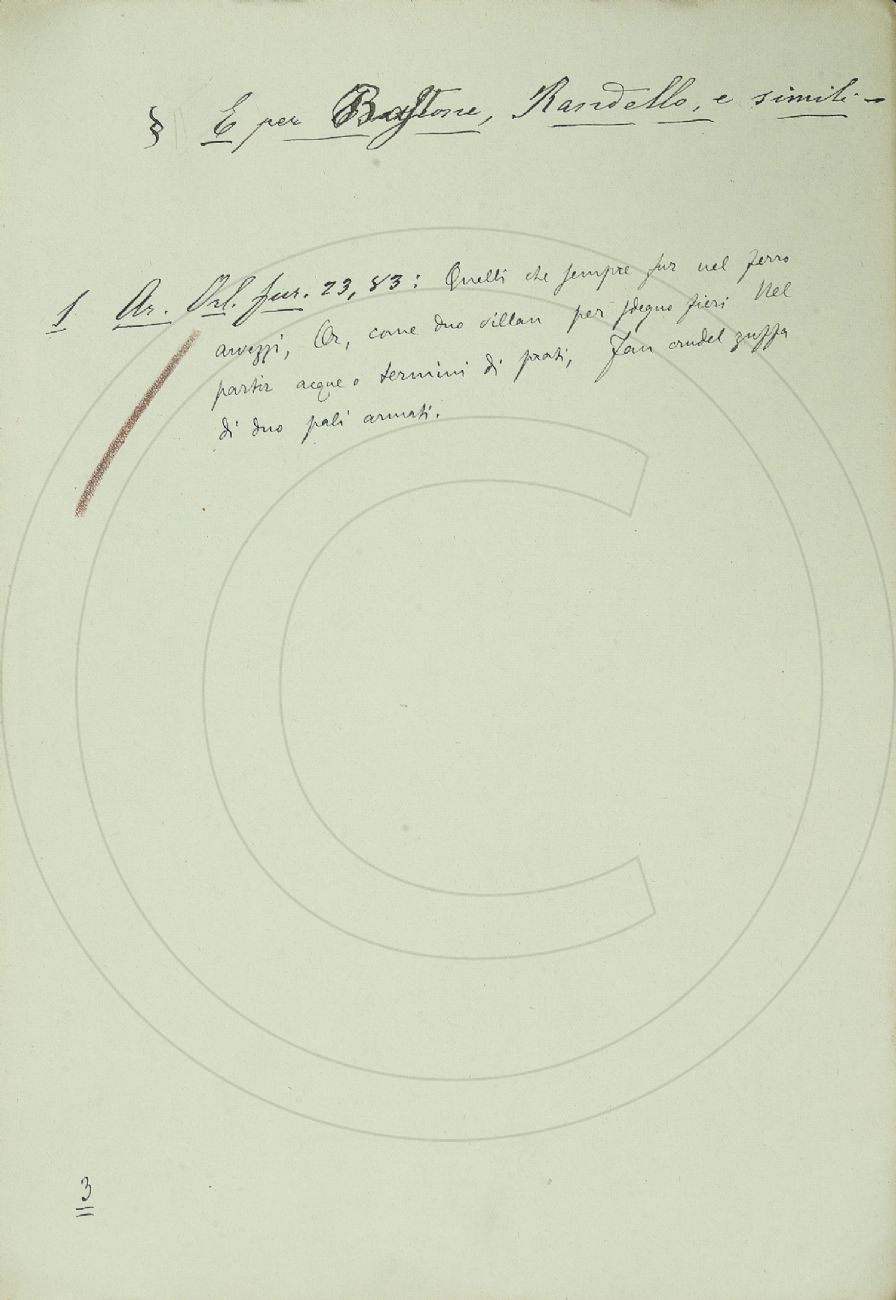 § E per Bastone, Randello, e simili.-
1 Ar. Orl. fur. 23, 83: Quelli che sempre fur nel ferro
avvezzi, Or, come duo villan per sdegno fieri Nel
partir acque o termini di prati, Fan crudel zuffa
di duo pali armati.
3